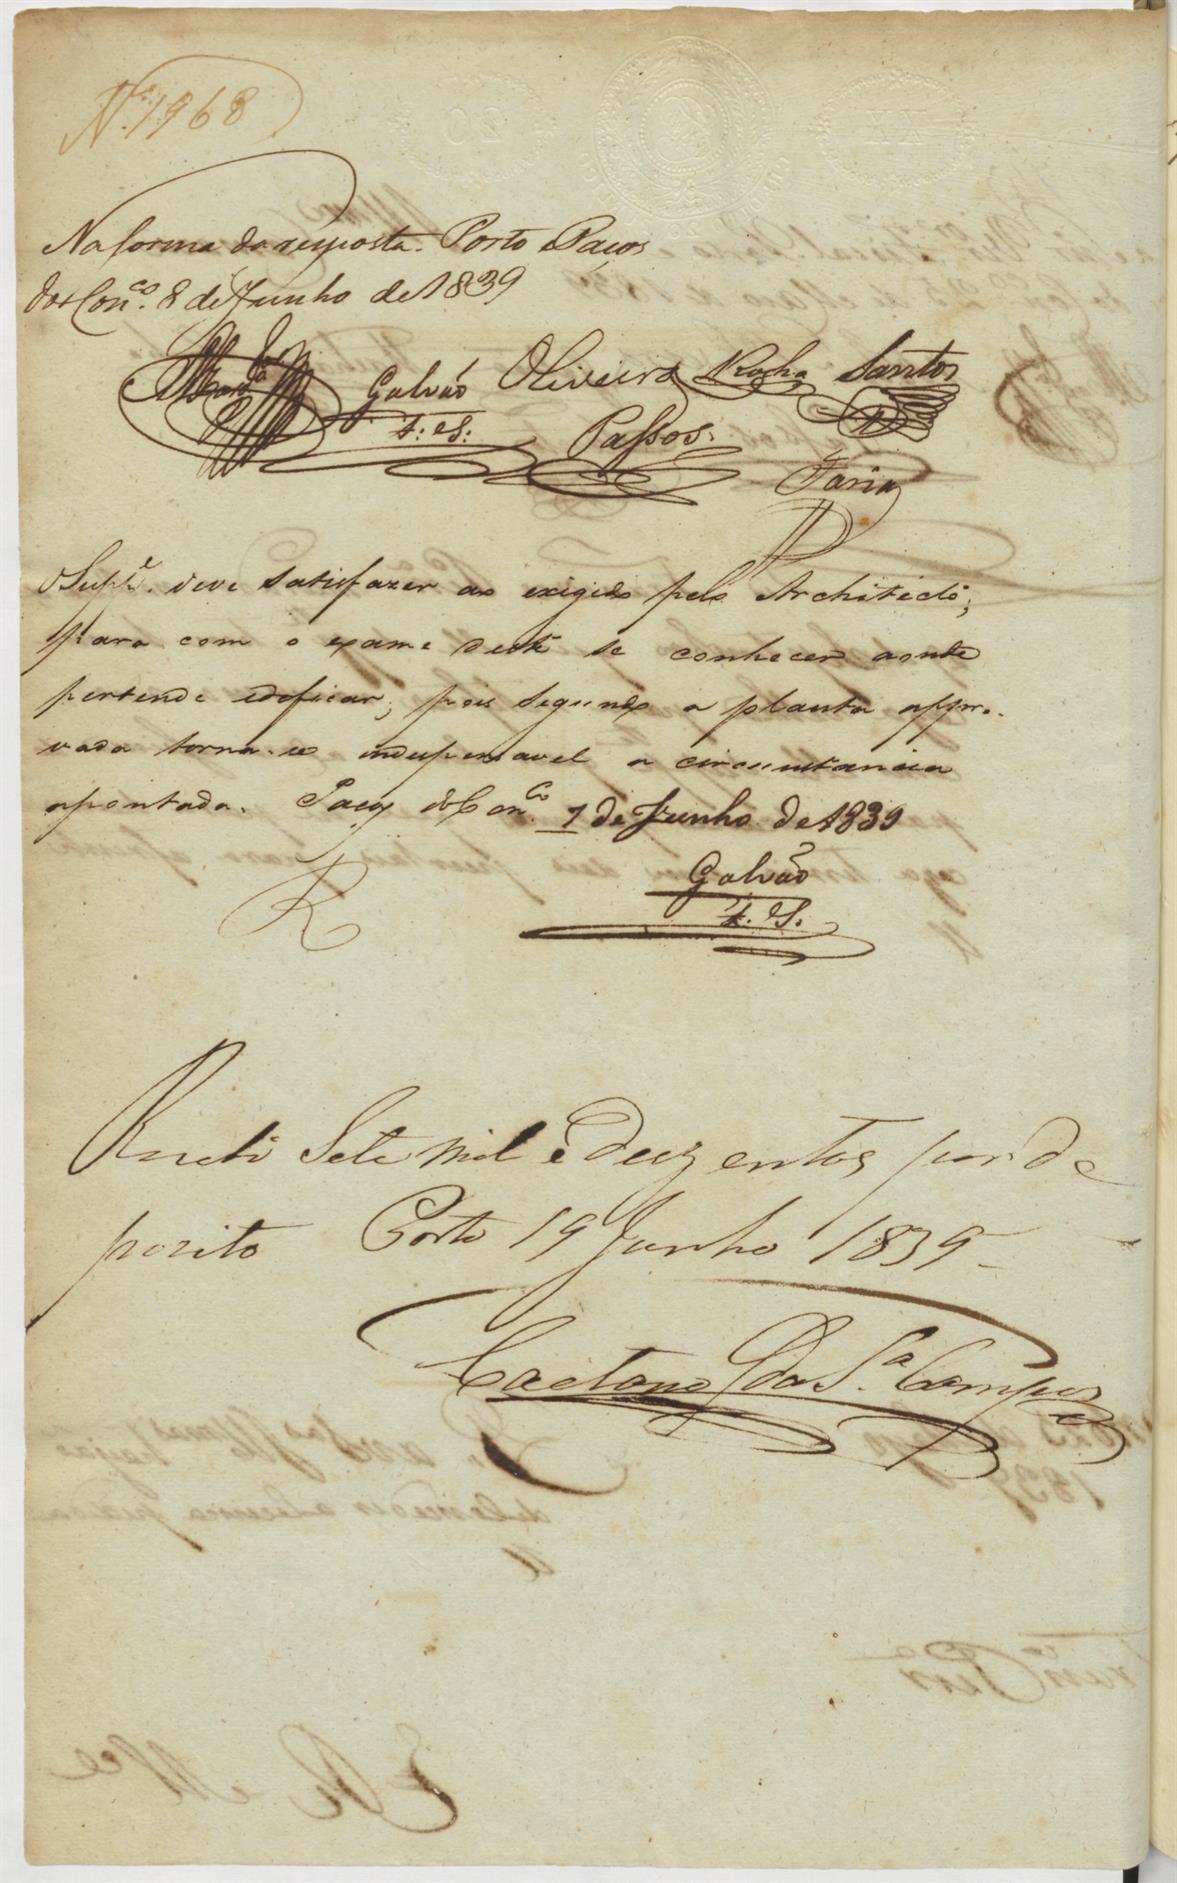 Nº. 1968
Na forma da resposta. Porto e Paços
do Conc.º 8 de Junho de 1839
Galvão Oliveira Rocha Santos
F. S. Passos.
Faria
O Supp.e deve satisfazer ao exigido pelo Architecto;
para com o exame deste se conhecer aonde
pertende edeficar; pois segundo a planta appro-
vada torna-se indespensavel a circunstancia
apontada. Paços do Conc.º 7 de Junho de 1839
Galvão
F. S.
R
Recebi Sete mil e Duzentos por de
pozito Porto 19 Junho 1839
Caetano da S.ª Campos